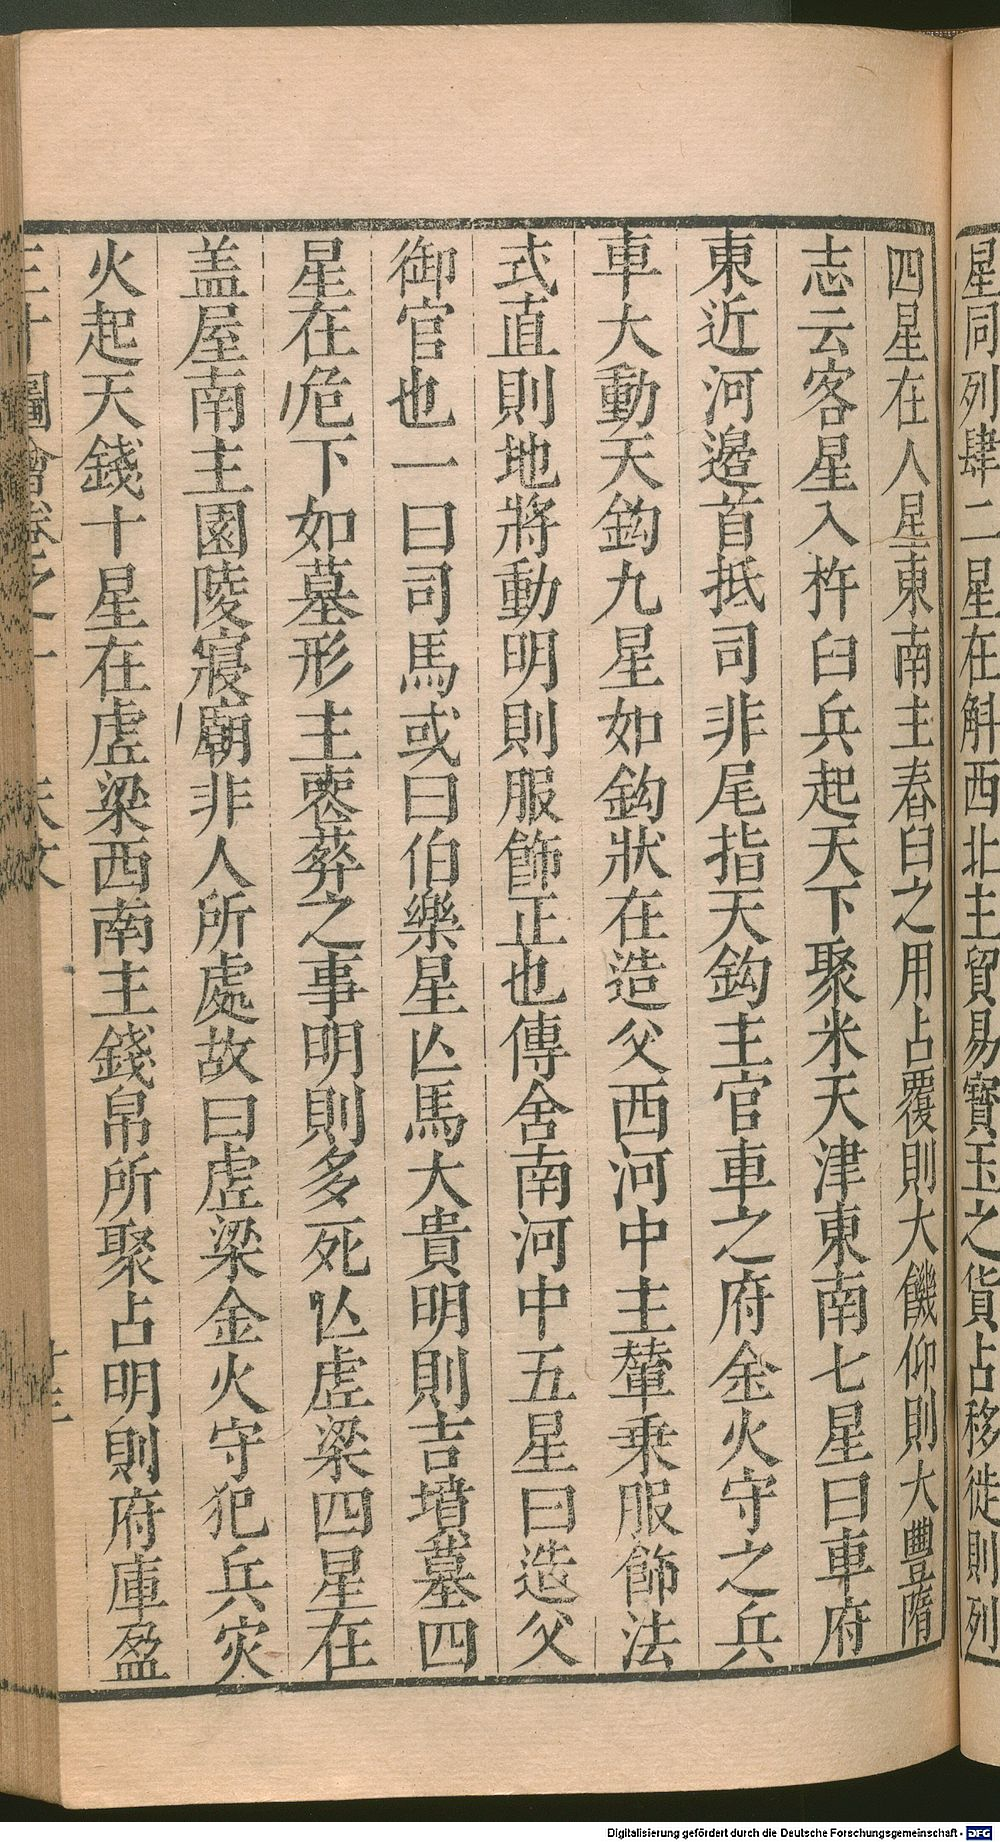 星同列肆二星在斛西北主貿易寶玉之貨占移徙則列
四星在人星東南主舂臼之用占覆則大饑仰則大豐隋
志云客星入杵臼兵起天下聚米天津東南七星曰車府
東近河邉首抵司非尾指天鈎主官車之府金火守之兵
車大動天鈎九星如鈎狀在造父西河中主輦乗服飾法
式直則地將動明則服飾正也傳舍南河中五星曰造父
御官也一曰司馬或曰伯樂星亾馬大貴明則吉墳墓四
星在危下如墓形主䘮葬之事明則多死亾虚梁四星在
盖屋南主園陵寢廟非人所處故曰虚梁金火守犯兵灾
火起天錢十星在虚梁西南主錢帛所聚占明則府庫盈
三才圖會卷之一 天文
Digitalisierung gefördert durch die Deutsche Forschungsgemeinschaft - DFG